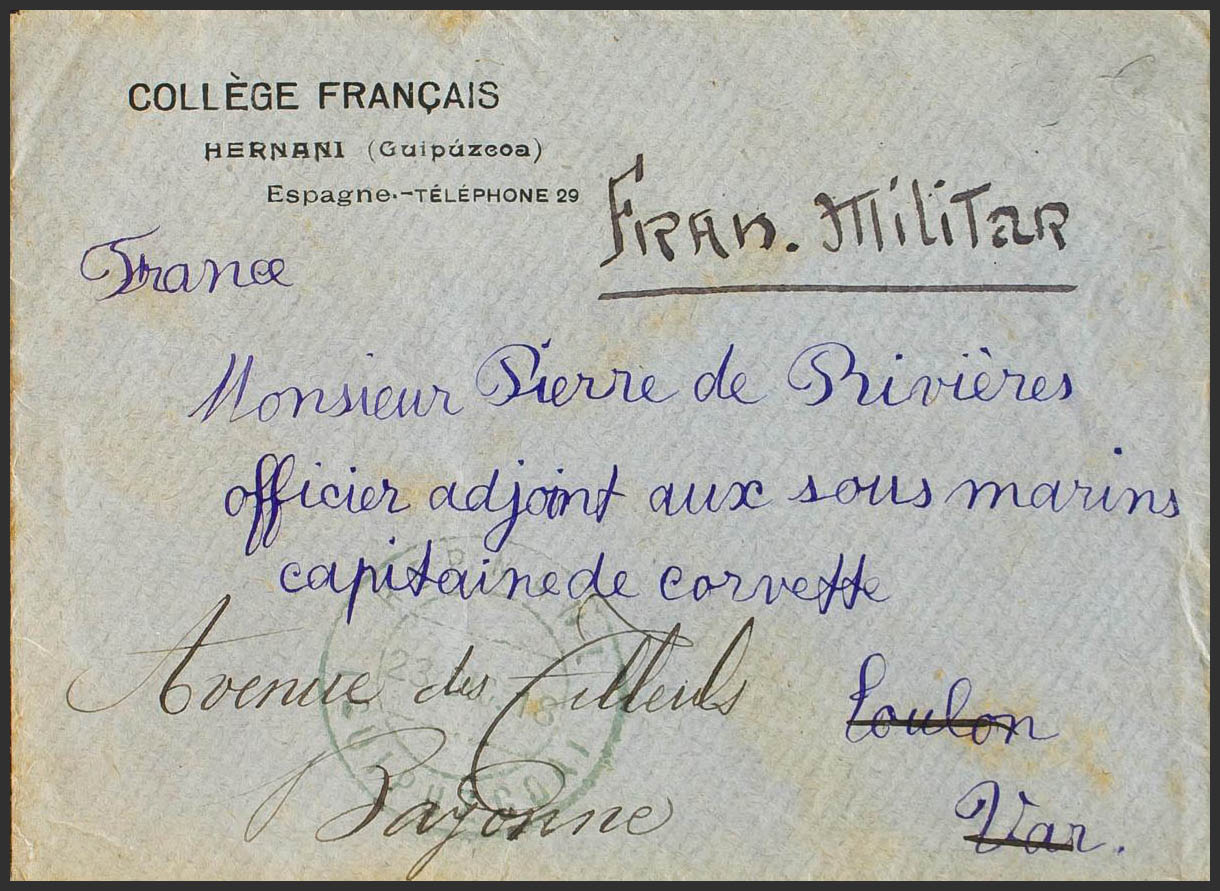 COLLÈGE FRANÇAIS
HERNANI (Guipúzcoa)
Espagne.-TÉLÉPHONE 29
Fran. Militar
France
Monsieur Pierre de Rivières
officier adjoint aux sous marins
capitaine de corvette
Avenue des Tilleuls
Toulon
Bayonne
Var.